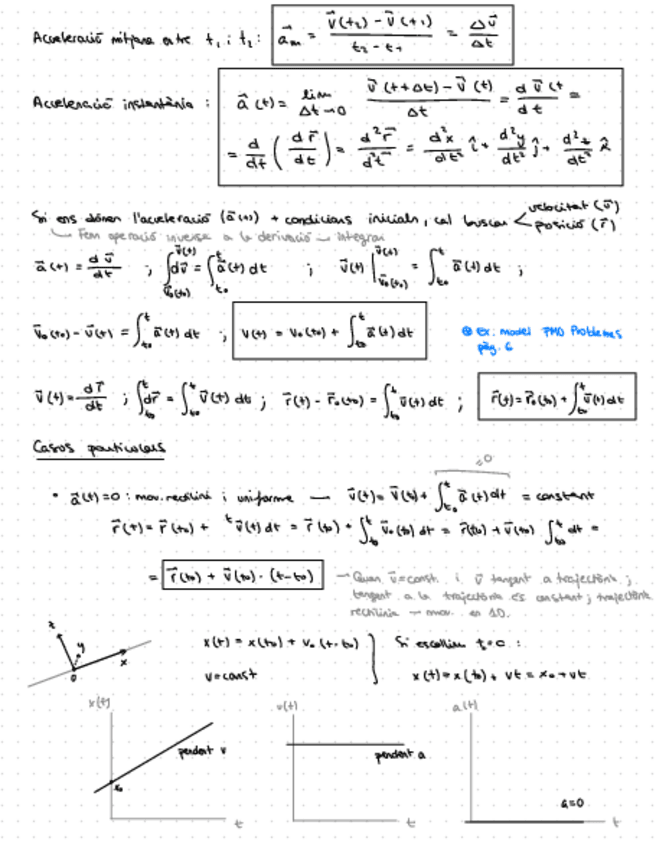 Acceleració mitjana entre t₁ i t₂: a⃗ₘ = (v⃗(t₂) - v⃗(t₁)) / (t₂ - t₁) = Δv⃗ / Δt
Acceleració instantània : a⃗(t) = lim Δt→0 (v⃗(t+Δt) - v⃗(t)) / Δt = d v⃗(t / dt =
= d/dt (d r⃗ / dt) = d²r⃗ / d²t = d²x/dt² î + d²y/dt² ĵ + d²z/dt² k̂
Si ens donen l'acceleració (a⃗(t)) + condicions inicials, cal buscar < velocitat (v⃗) posició (r⃗)
Fem operació inversa a la derivació → integrar
a⃗(t) = d v⃗ / dt ; ∫_{v⃗₀(t₀)}^{v⃗(t)} dv⃗ = ∫_{t₀}^{t} a⃗(t) dt ; v⃗(t) |_{v⃗₀(t₀)}^{v⃗(t)} = ∫_{t₀}^{t} a⃗(t) dt ;
v⃗₀(t₀) - v⃗(t) = ∫_{t₀}^{t} a⃗(t) dt ; v(t) = v₀(t₀) + ∫_{t₀}^{t} a⃗(t) dt
Ex. model PMD Problemes
pàg. 6
v⃗(t) = d r⃗ / dt ; ∫_{t₀}^{t} dr⃗ = ∫_{t₀}^{t} v⃗(t) dt ; r⃗(t) - r⃗₀(t₀) = ∫_{t₀}^{t} v⃗(t) dt ; r⃗(t) = r⃗₀(t₀) + ∫_{t₀}^{t} v⃗(t) dt
Casos particulars
=0
• a⃗(t)=0 : mov. rectilini i uniforme — v⃗(t) = v⃗(t₀) + ∫_{t₀}^{t} a⃗(t) dt = constant
r⃗(t) = r⃗(t₀) + ᵗ v⃗(t) dt = r⃗(t₀) + ∫_{t₀}^{t} v⃗₀(t₀) dt = r⃗(t₀) + v⃗(t₀) ∫_{t₀}^{t} dt =
= r⃗(t₀) + v⃗(t₀) · (t-t₀)
→ Quan v⃗=const. i v⃗ tangent a trajectòria ;
tangent a la trajectòria és constant ; trajectòria
rectilínia → mov. en 1D.
z y x 0
x(t) = x(t₀) + v₀ (t-t₀)
v=const
Si escollim t₀=0 :
x(t) = x(t₀) + vt = x₀ + vt
x(t) x₀ pendent v t
v(t) pendent a t
a(t) a=0 t